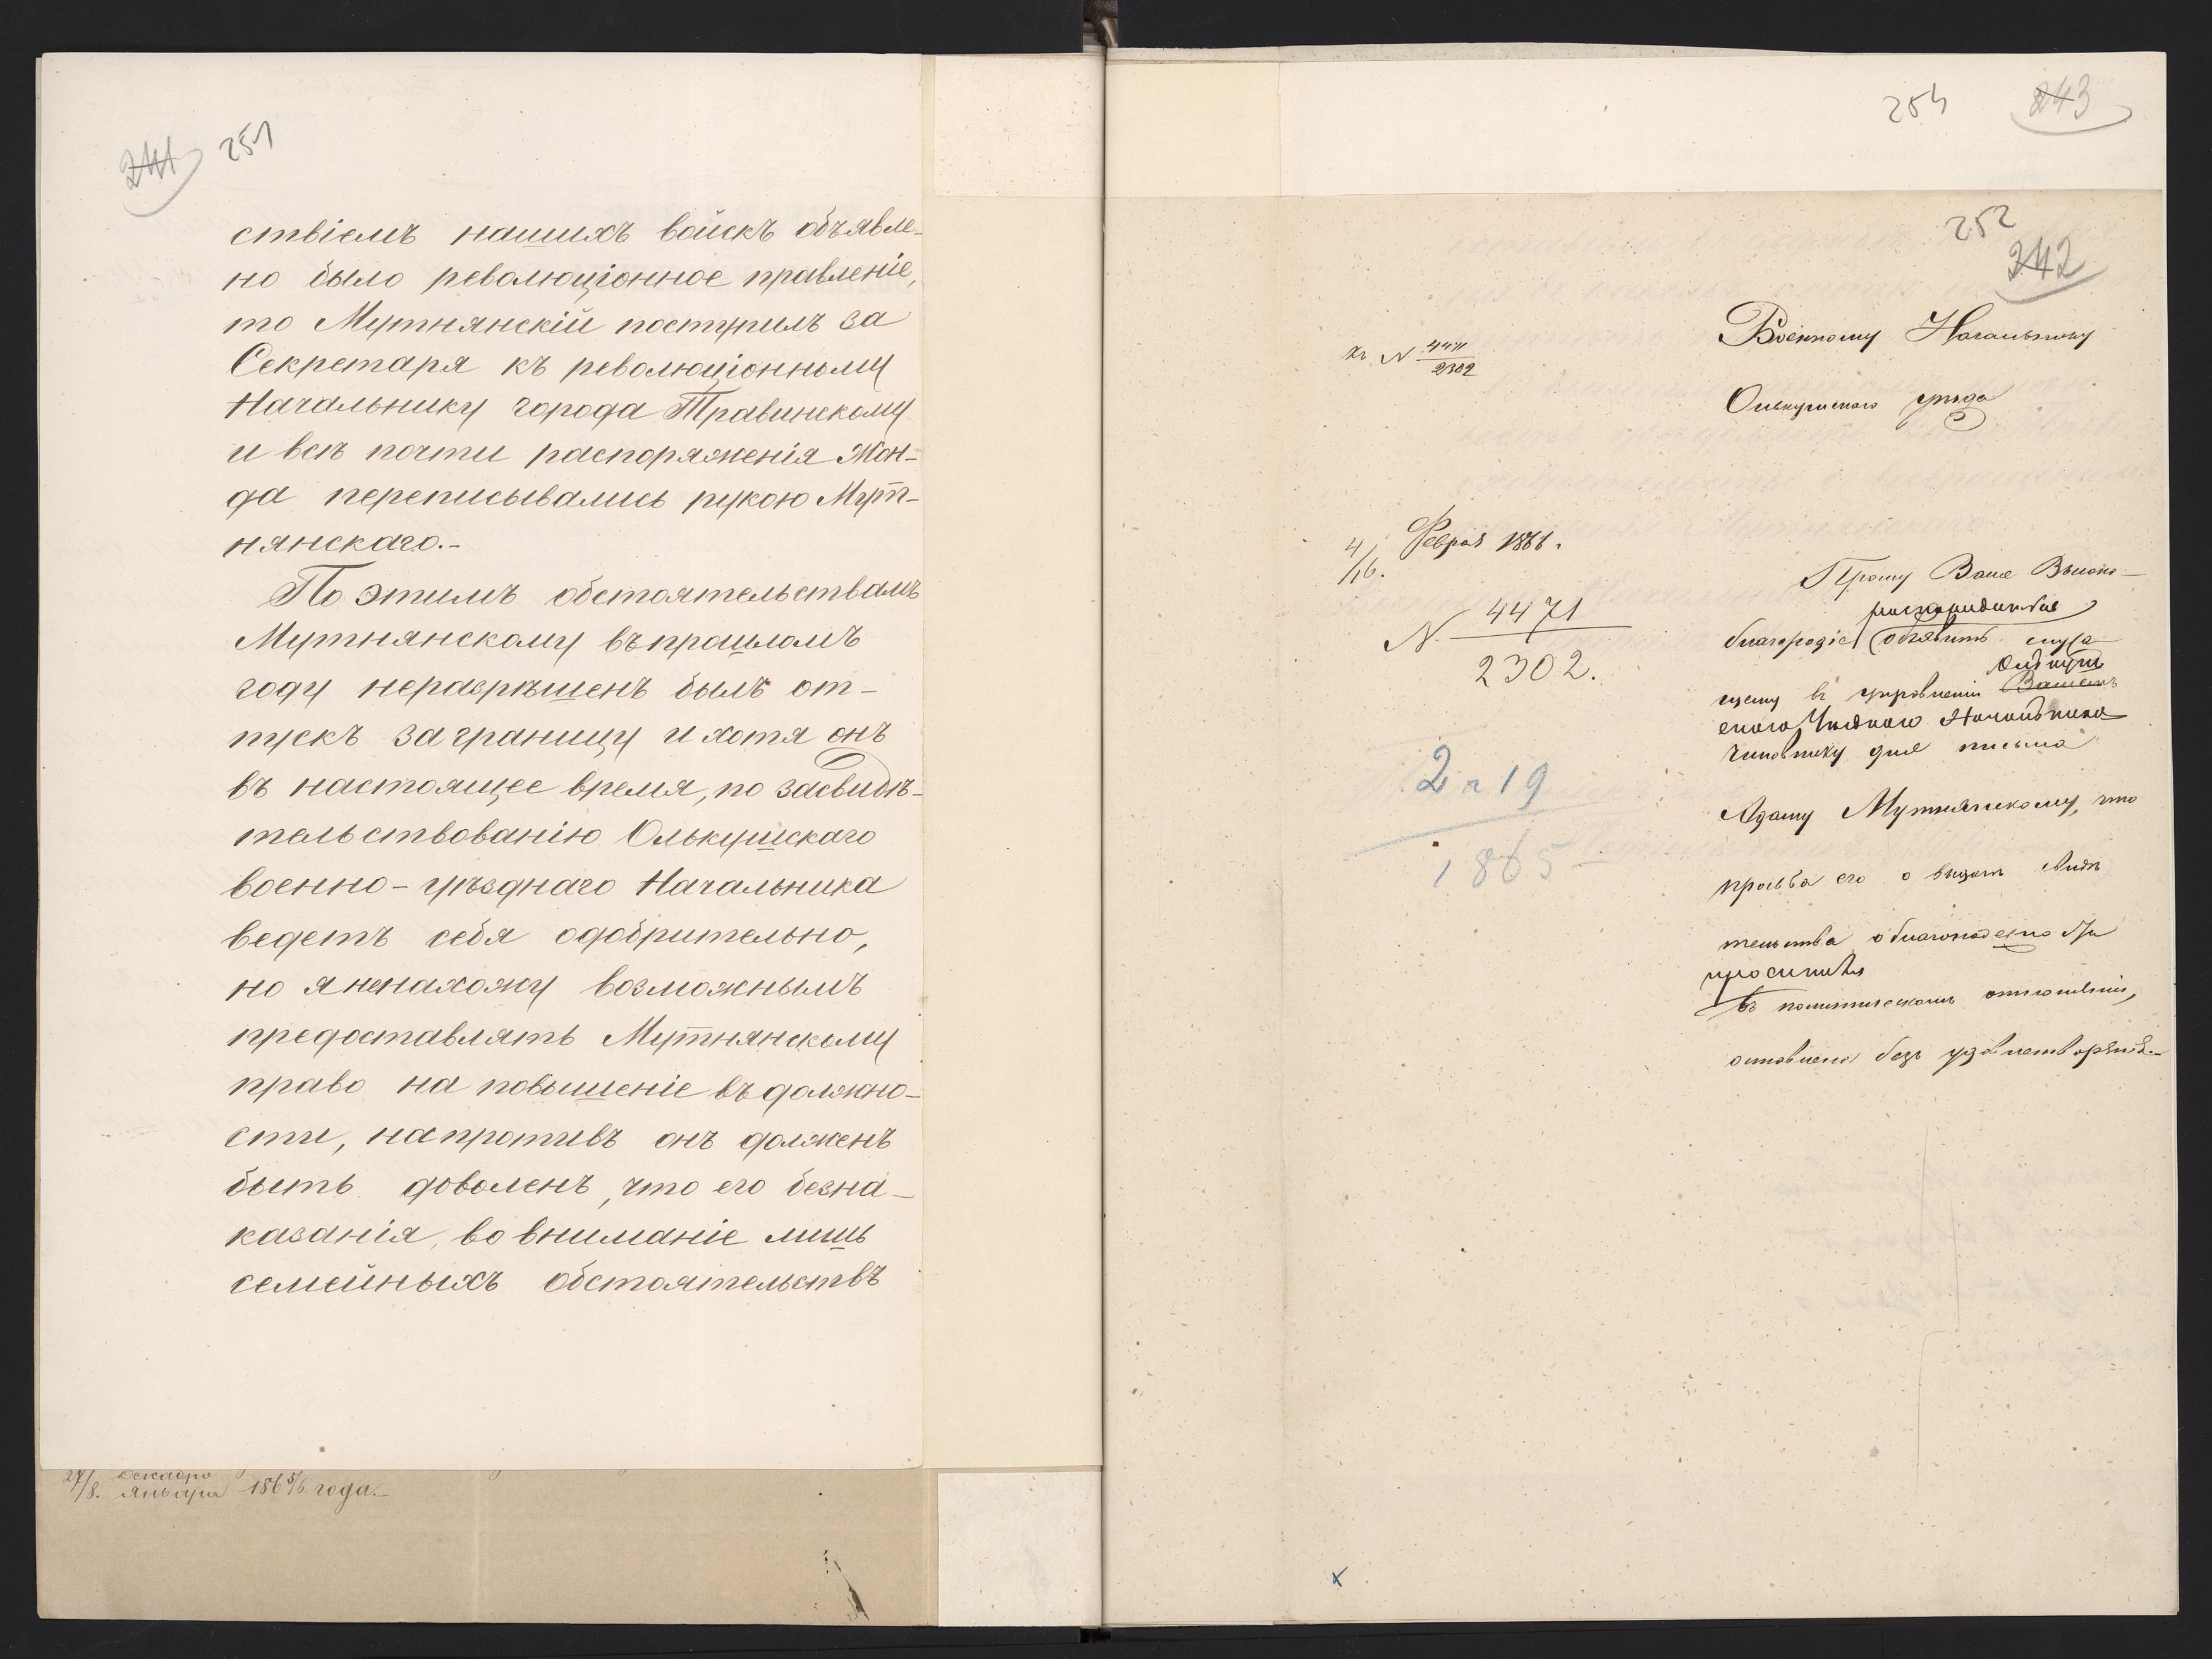 241 251
ствіемъ нашихъ войскъ объявле-
но было революціонное правленіе,
то Мутнянскій поступилъ за
Секретаря къ революціонному
Начальнику города Травинскому
и всѣ почти распоряженія Жон-
да переписывались рукою Мут-
нянскаго.-
По этимъ обстоятельствамъ
Мутнянскому въ прошломъ
году неразрѣшенъ былъ от-
пускъ за границу и хотя онъ
въ настоящее время, по засвидѣ-
тельствованію Олькушскаго
военно-уѣзднаго Начальника
ведетъ себя одобрительно,
но я ненахожу возможнымъ
предоставлять Мутнянскому
право на повышеніе въ должно-
сти, напротивъ онъ долженъ
быть доволенъ, что его безна-
казанія, во вниманіе лишь
семейныхъ обстоятельствъ
27/8. Декабря
Января 1865/6 года.-
254 243
252
242
Военному Начальнику
къ N 4471/2302
Олькушскаго уѣзда
4/16. Февраля 1866.
Прошу Ваше Высоко-
N 4471
2302.
благородіе объявить служа-
щему въ управленіи Вашемъ
Олькуш
скаго Уѣзднаго Начальника
чиновнику для письма
2 n 19
1865
Адаму Мутнянскому, что
просьба его о выдачѣ свидѣ
тельства о благонадежно
въ политическомъ отношеніи,
оставлена безъ удовлетворенія.-
x